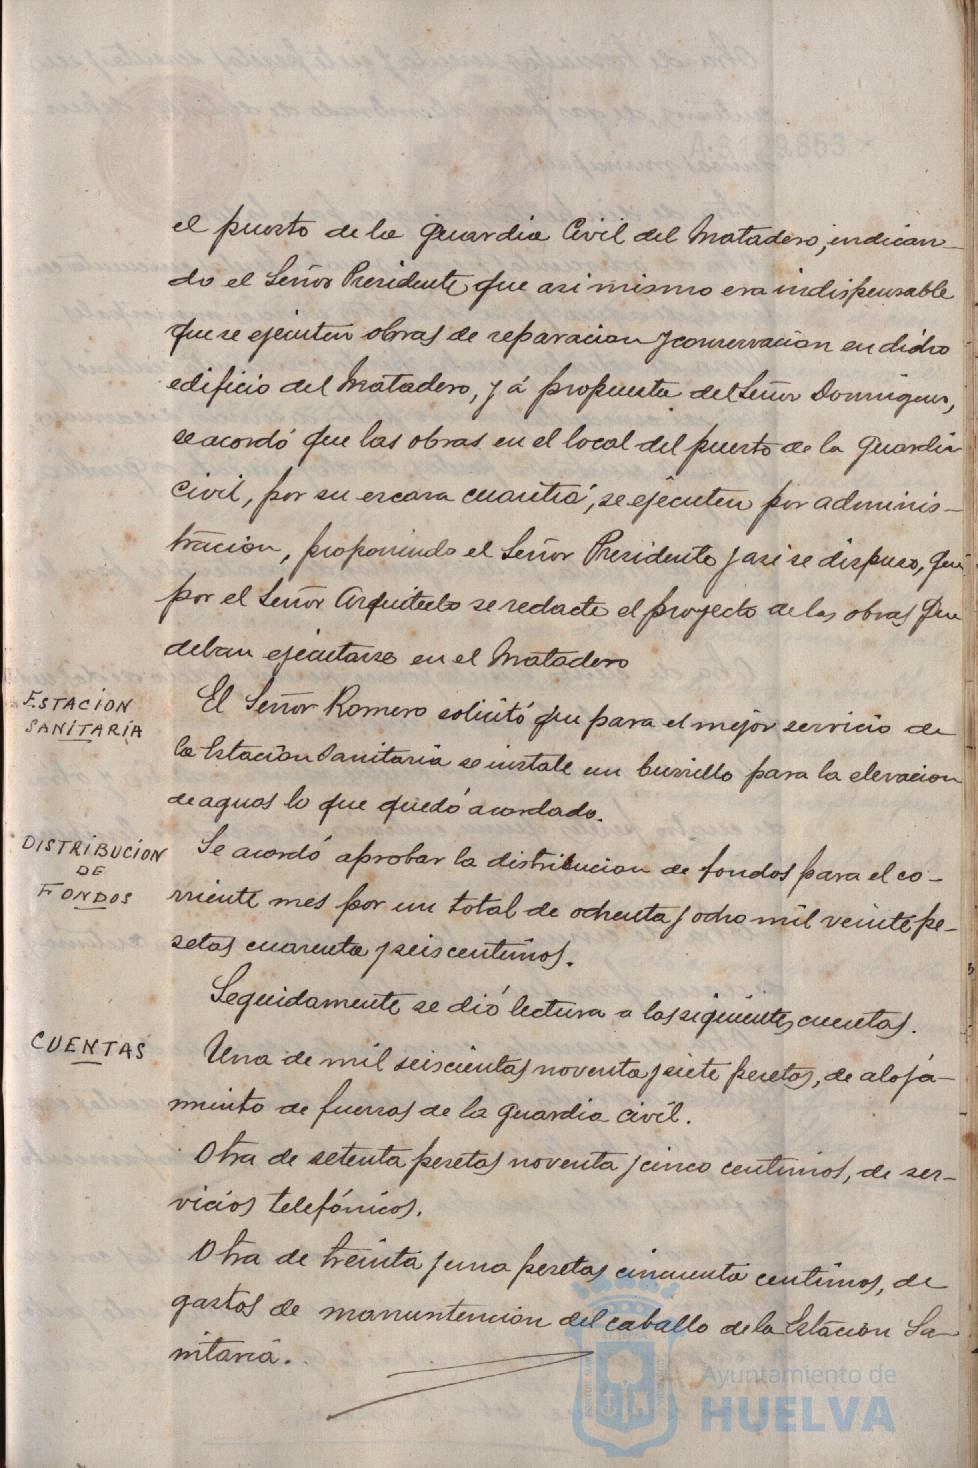 el puesto de la Guardia Civil del Matadero, indican-
do el Señor Presidente que asi mismo era indispensable
que se ejecuten obras de reparacion y conservacion en dicho
edificio del Matadero, y á propuesta del Señor Dominguez,
se acordó que las obras en el local del puesto de la Guardia
civil, por su escasa cuantía, se ejecuten por adminis-
tracion, proponiendo el Señor Presidente y asi se dispuso, que
por el Señor Arquitecto se redacte el proyecto de las obras que
deban ejecutarse en el Matadero
ESTACION
SANITARIA
El Señor Romero solicitó que para el mejor servicio de
la Estación Sanitaria se instale un burrillo para la elevacion
de aguas lo que quedó acordado.
DISTRIBUCION
DE
FONDOS
Se acordó aprobar la distribucion de fondos para el co-
rriente mes por un total de ochenta y ocho mil veinte pe-
setas cuarenta y seis centimos.
Seguidamente se dió lectura a las siguientes cuentas.
CUENTAS
Una de mil seiscientas noventa y siete pesetas, de aloja-
miento de fuerzas de la Guardia civil.
Otra de setenta pesetas noventa y cinco centimos, de ser-
vicios telefónicos.
Otra de treinta y una pesetas cincuenta centimos, de
gastos de manuntencion del caballo de la Estacion Sa-
nitaria.
Ayuntamiento de
HUELVA